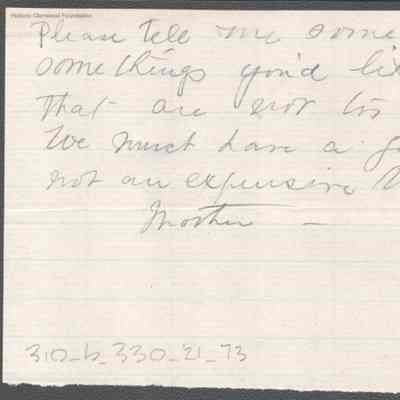 Historic Glenwood Foundation
Please tele me some
some things you'd li
that are not
We must have a
not an expensive
Mother —
310_b_330_21_73